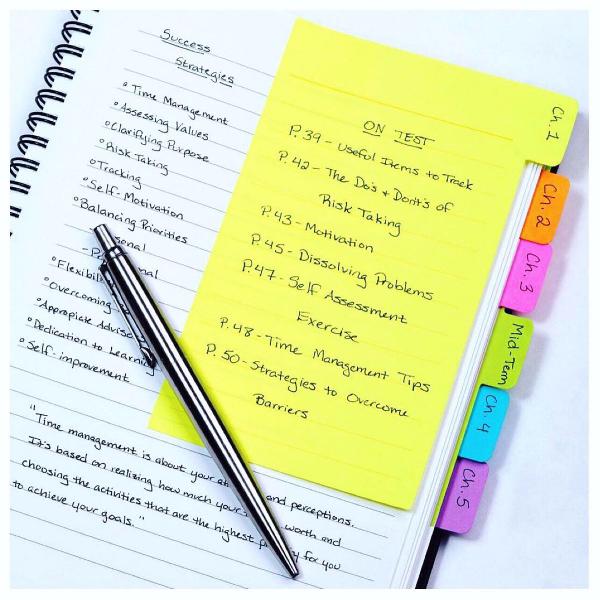 Success
Strategies
° Time Management
° Assessing Values
° Clarifying Purpose
° Risk Taking
° Tracking
° Self-Motivation
° Balancing Priorities
° Overcoming
° Appropiate
° Dedication to Learning
° Self-improvement
"Time management is about your and perceptions.
It's based on realizing how much your worth and
choosing the activities that are the highest for you
to achieve your goals."
ON TEST
P. 39 - Useful Items to Track
P. 42 - The Do's & Dont's of
Risk Taking
P. 43 - Motivation
P. 45 - Dissolving Problems
P. 47 - Self Assessment
Exercise
P. 48 - Time Management Tips
P. 50 - Strategies to Overcome
Barriers
Ch. 1
Ch. 2
Ch. 3
Mid-Term
Ch. 4
Ch. 5